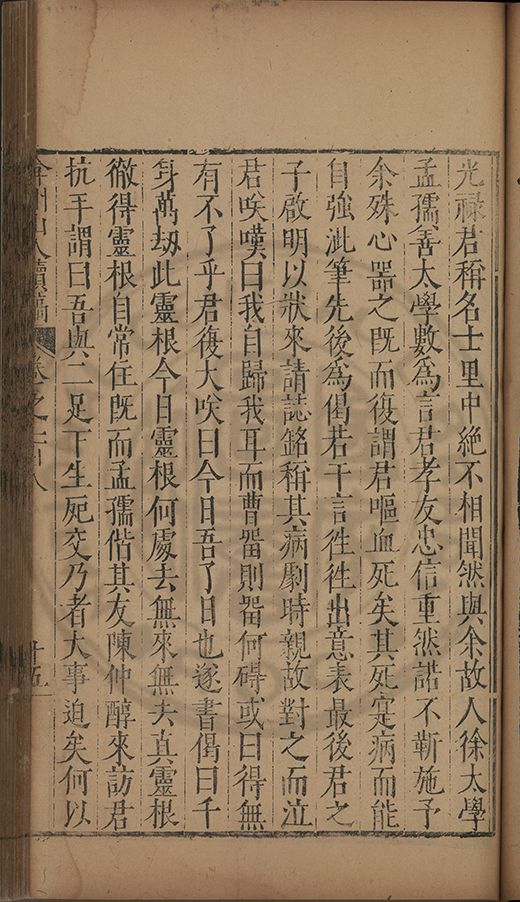 光祿君稱名士里中絶不相聞然與余故人徐太學
孟孺善太學數為言君孝友忠信重然諾不靳施予
余殊心器之既而復謂君嘔血死矣其死寔病而能
自強泚筆先後為偈若干言徃徃出意表最後君之
子啟明以狀來請誌銘稱其病劇時親故對之而泣
君咲嘆曰我自歸我耳而曹畱則畱何碍或曰得無
有不了乎君復大咲曰今日吾了日也遂書偈曰千
身萬劫此靈根今日靈根何處去無來無去真靈根
徹得靈根自常住既而孟孺偕其友陳仲醇來訪君
抗手謂曰吾與二足下生死交乃者大事迫矣何以
弇州山人續稿 卷之一百八 十五